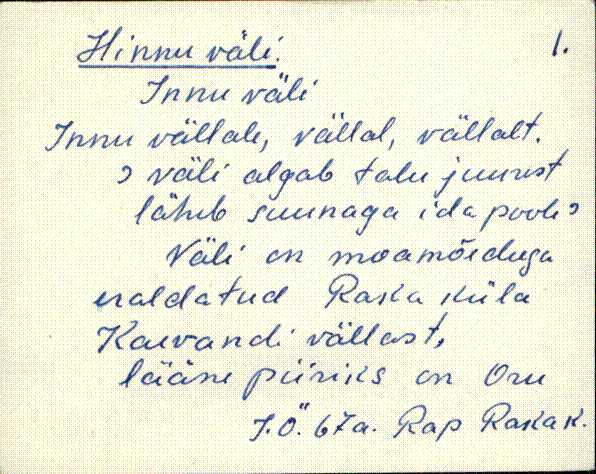 Hinnu väli. 1.
Innu väli
Innu vällale, vällal, vällalt.
> väli algab talu juurest
läheb suunaga ida poole>
Väli on maamõeduga
eraldatud Raka küla
Kaevandi vällast,
lääne piiriks on Oru
J. Ö. 67a. Rap Raka k.